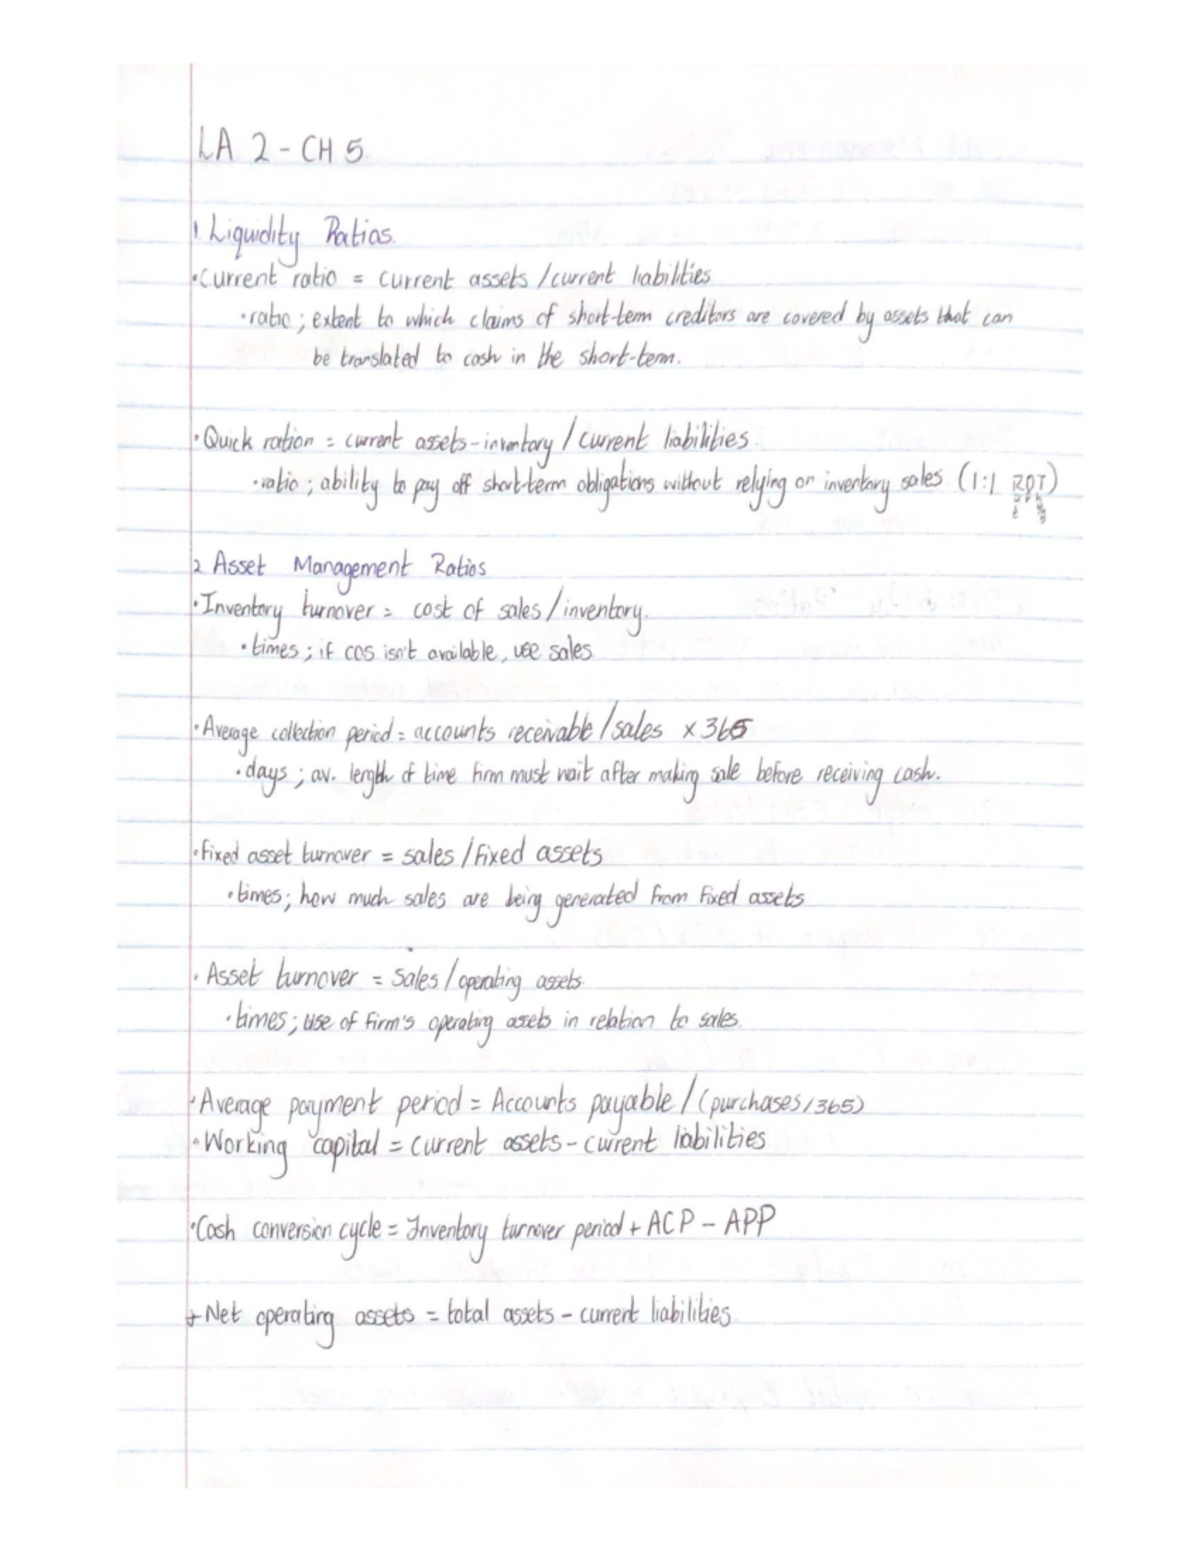 LA 2 - CH 5
1. Liquidity Ratios.
•Current ratio = current assets / current liabilities
•ratio ; extent to which claims of short-term creditors are covered by assets that can
be translated to cash in the short-term.
•Quick ration = current assets - inventory / current liabilities.
•ratio ; ability to pay off short-term obligations without relying on inventory sales (1:1 ROT)
2 Asset Management Ratios
•Inventory turnover = cost of sales / inventory.
•times ; if cos isn't available, use sales.
•Average collection period = accounts receivable / sales x 365
•days ; av. length of time firm must wait after making sale before receiving cash.
•fixed asset turnover = sales / fixed assets
•times ; how much sales are being generated from fixed assets
•Asset turnover = Sales / operating assets.
•times ; use of firm's operating assets in relation to sales.
•Average payment period = Accounts payable / (purchases / 365)
•Working capital = current assets - current liabilities
•Cash conversion cycle = Inventory turnover period + ACP - APP
+ Net operating assets = total assets - current liabilities.